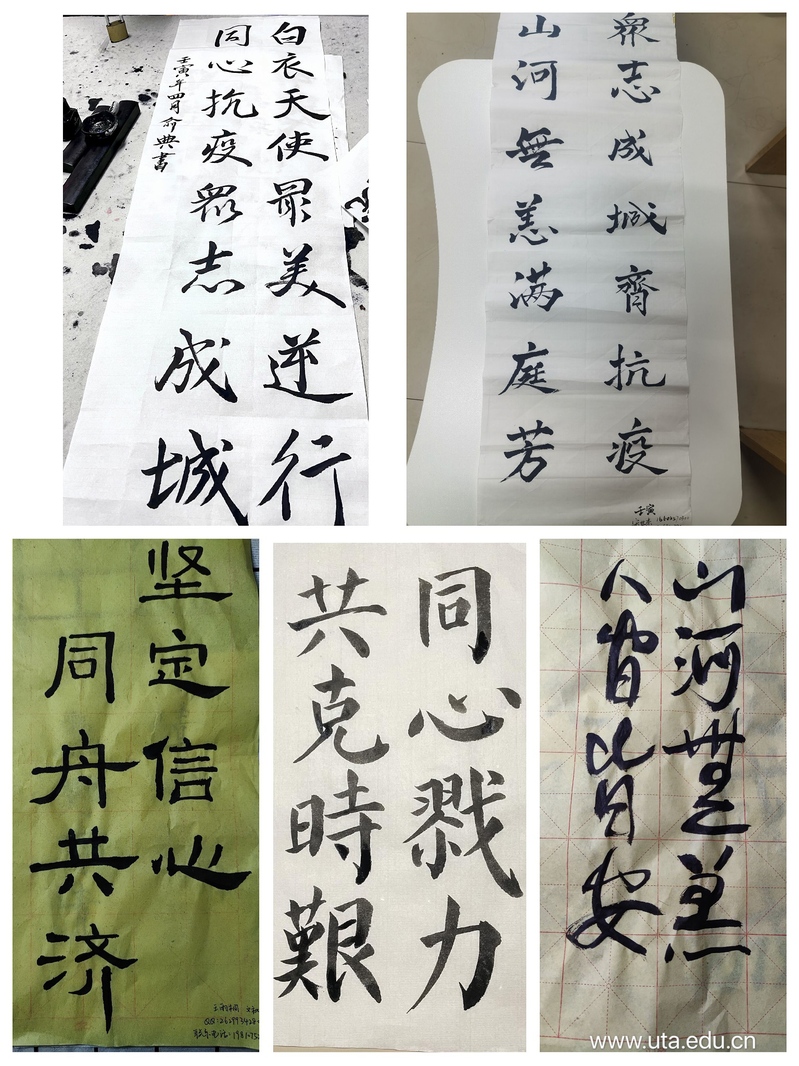 白衣天使最美逆行
同心抗疫眾志成城
壬寅年四月俞典書
衆志成城齊抗疫
山河無恙满庭芳
壬寅
坚定信心
同舟共济
同心戮力
共克時艱
山河無恙
人皆安
www.uta.edu.cn